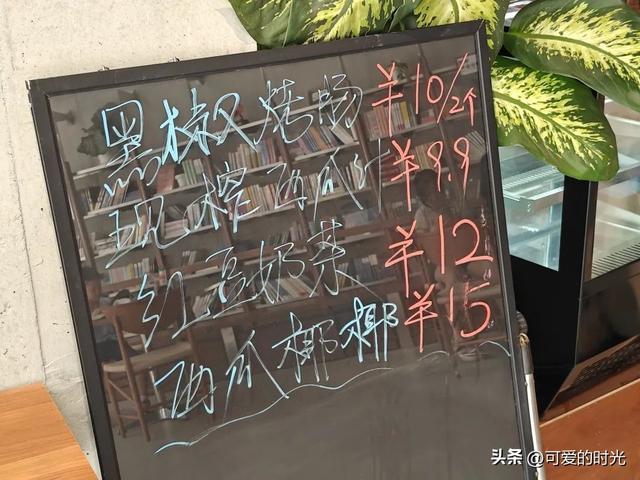 黑椒烤肠 ¥10/2个
现榨西瓜汁 ¥9.9
红豆奶茶 ¥12
西瓜椰椰 ¥15
头条 @可爱的时光